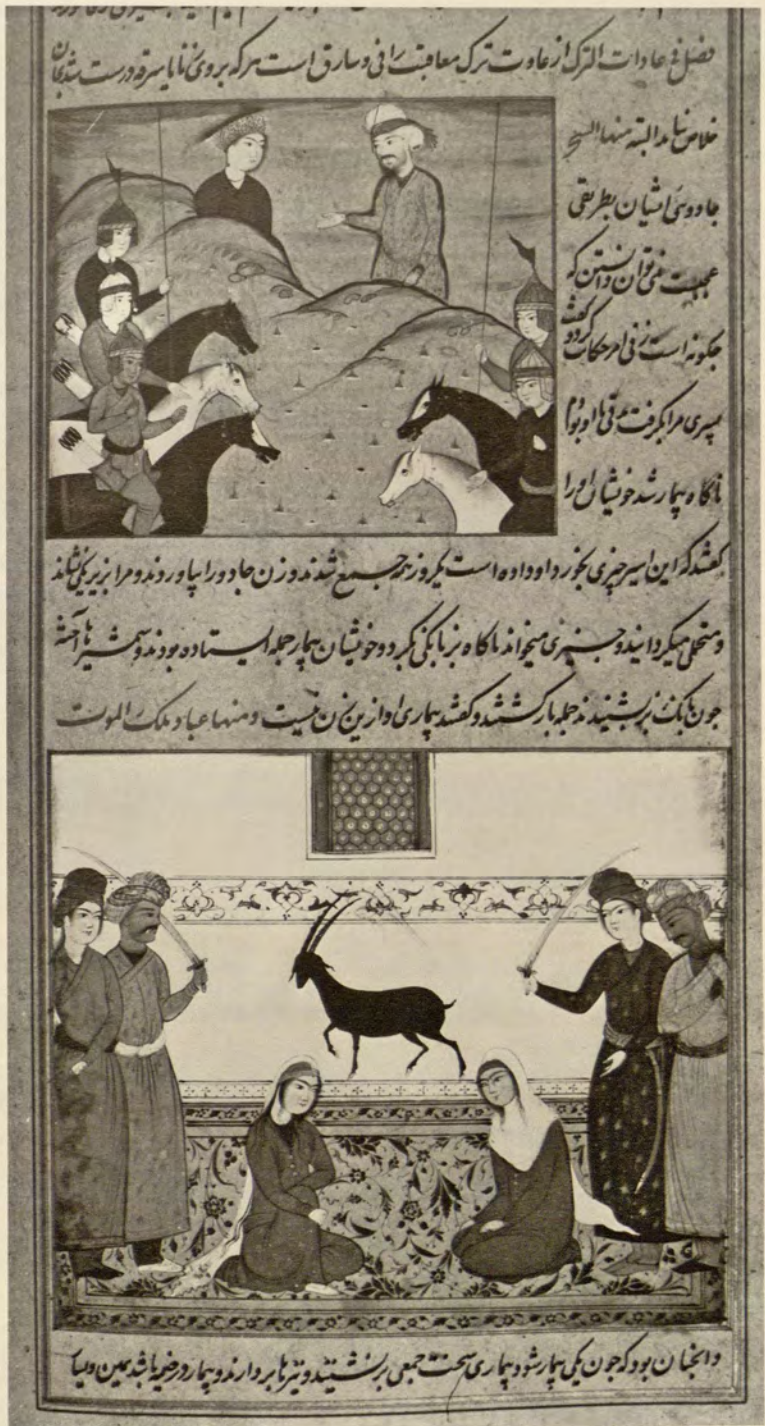 فصل فی عادات الترک از عادت ترک معاقبت زانی و سارق است هر که بروی زنا یا سرقه درست شد بجان
خلاص نیابد البته منها السحر
جادوئی ایشان بطریقی
عجبست نمی توان دانستن که
چکونه است زنی امر حکایت کرد و کفت
مرا بکرفت مدتی با او بودم
ناکاه بیمار شد خویشان او را
کفتند که این اسیر چیزی بخورد او داده است یکروز همه جمع شدند و زن جادو را بیاوردند و مرا بزیر یکی نشاند
و منخلی میکردانید و چیزی میخواند ناکاه بز بانکی بکرد و خویشان بیمار جمله ایستاده بودند و شمشیرها آخته
جون بانک بز بشنیدند جمله بازکشتند و کفتند بیماری او ازین زن نیست و منها عباد ملک الموت
و انجنان بود که جون یکی بیمار شود بیماری سخت جمعی برنشینند و تیرها بردارند و بیمار در خیمه باشد یمین و یسار